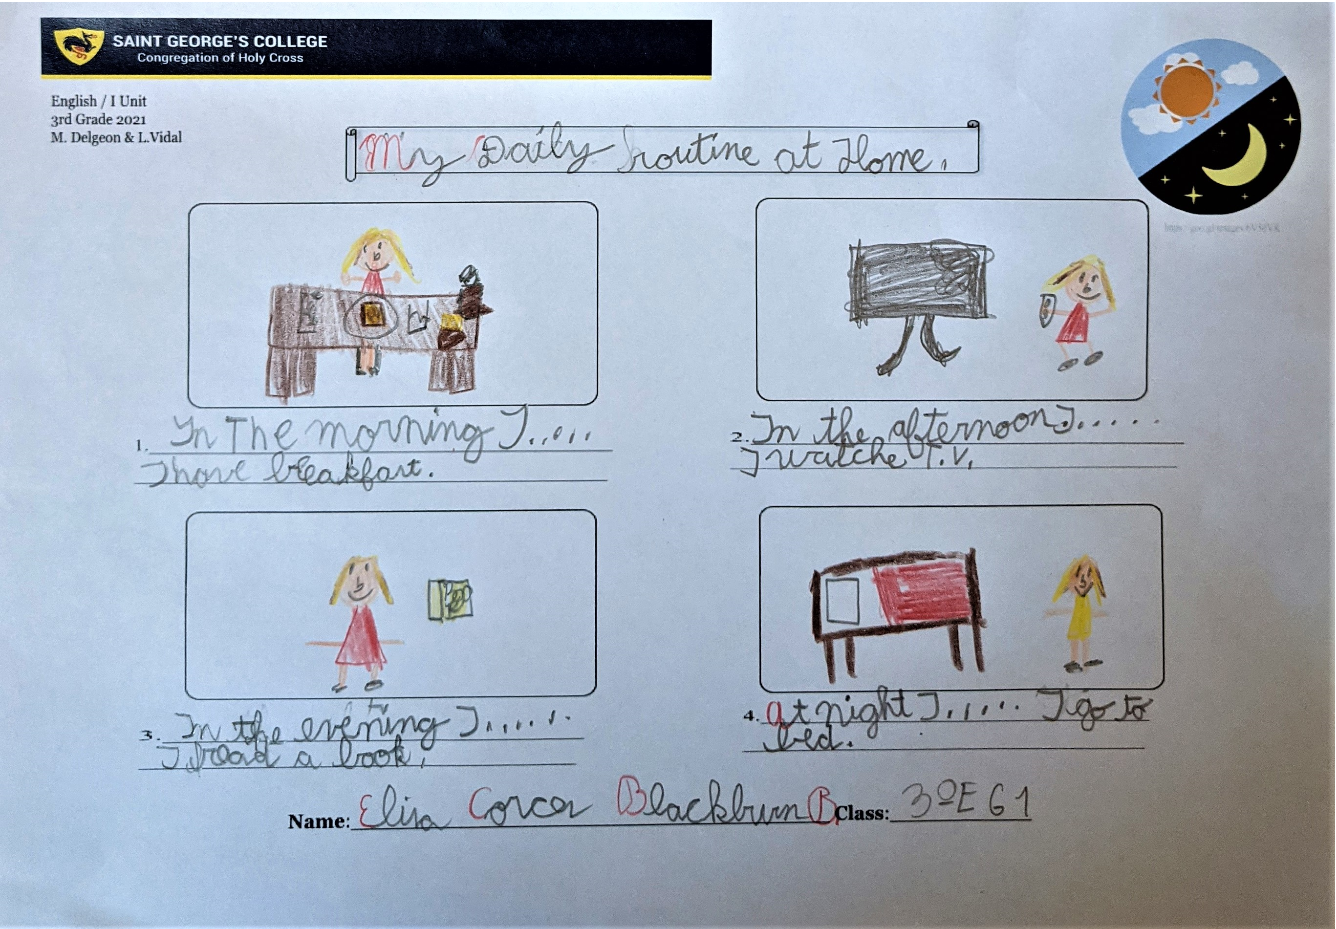 SAINT GEORGE'S COLLEGE
Congregation of Holy Cross
English / I Unit
3rd Grade 2021
M. Delgeon & L.Vidal
My Daily routine at Home.
1. In The morning I.....
I have breakfast.
2. In the afternoon I......
I watche T.V.
3. In the evening I......
I read a book.
4. At night I...... I go to
bed.
Name: Elisa Blackburn B. Class: 3ºE G1